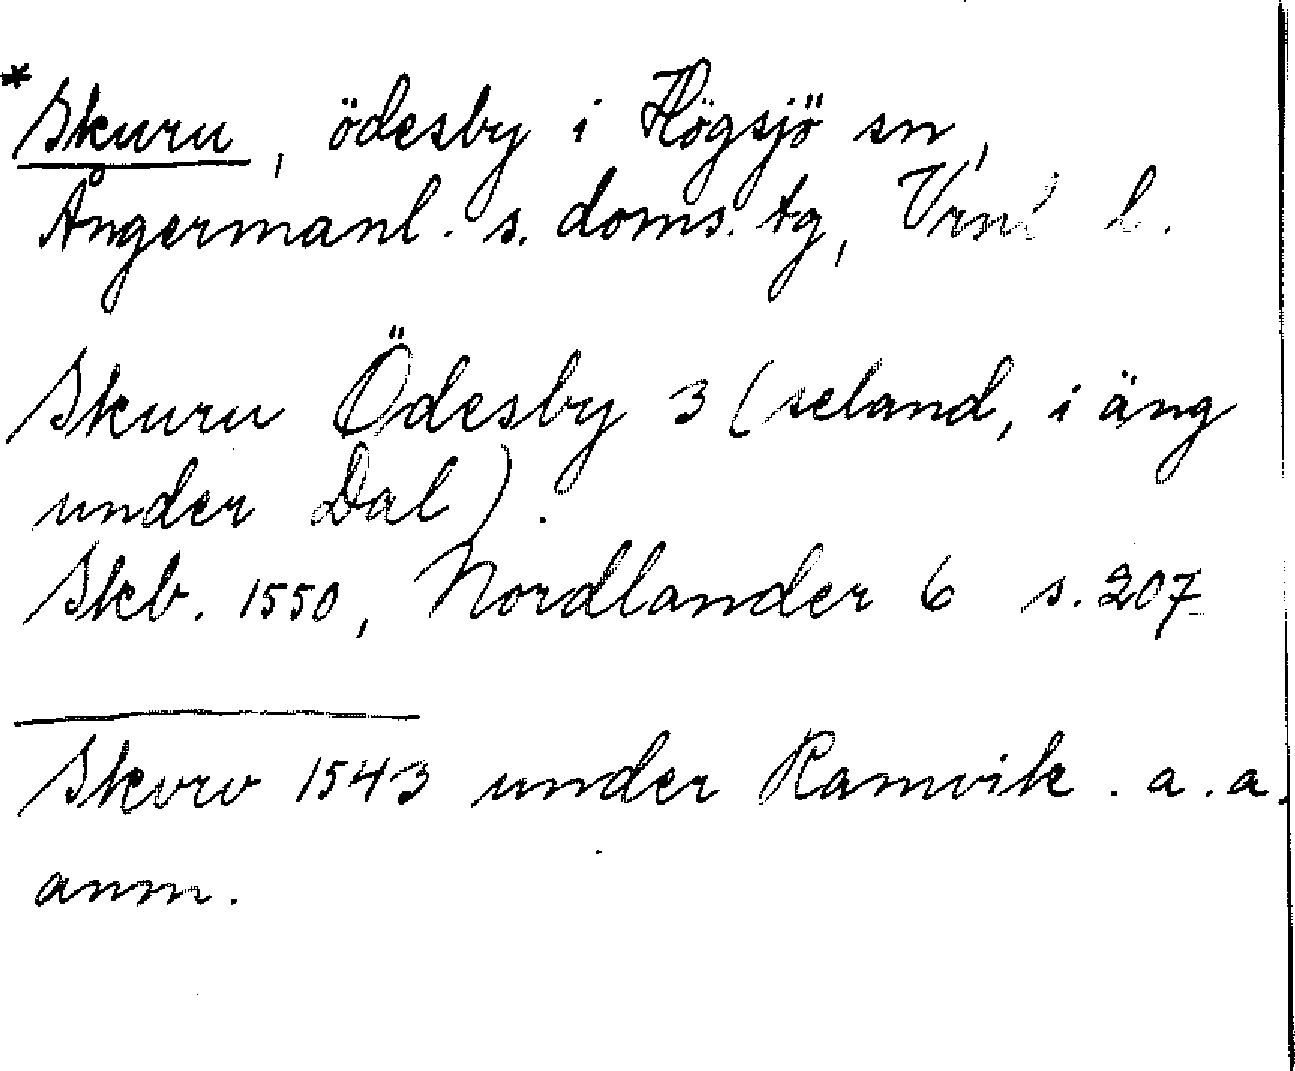 *Skuru, ödesby i Högsjö sn,
Ångermanl. s. doms. tg, Vrnl l.
Skuru Ödesby 3 (seland, i äng
under Dal).
Skb. 1550, Nordlander 6 s. 207
Skvrv 1543 under Ramvik. a. a.
anm.